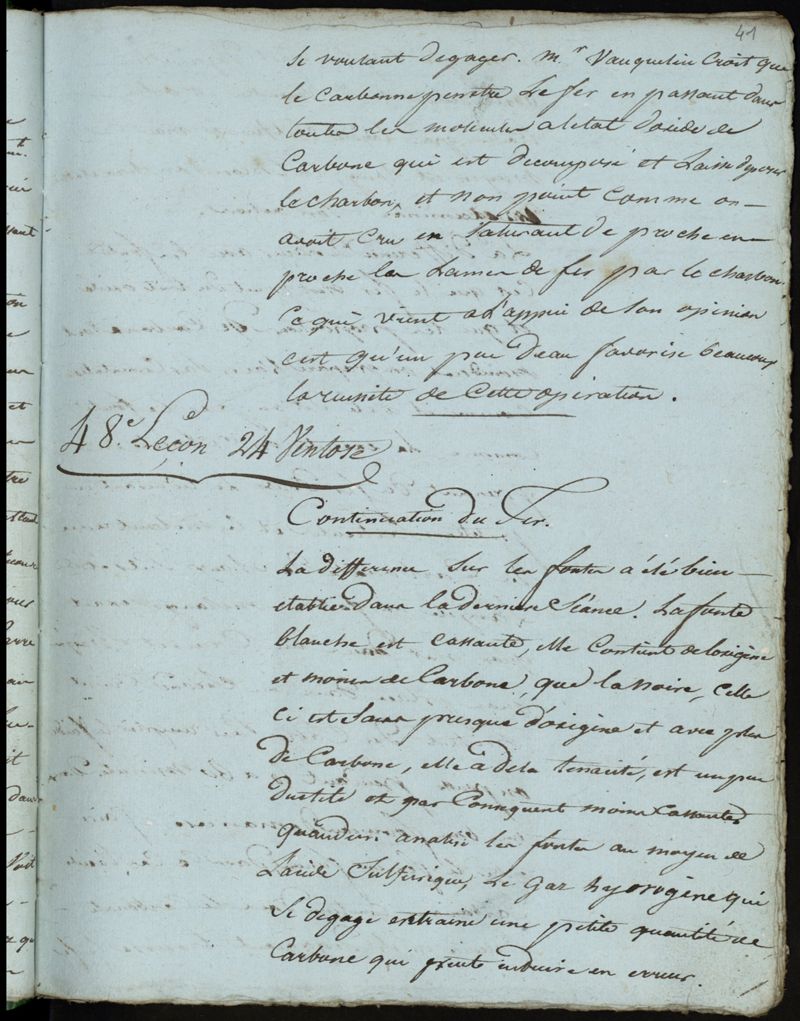 41
se voulant degager. m.r Vauquelin Croit que
le carbonne penetre Le fer en passant dans
toutes les molecules a letat doxide de
Carbone qui est decomposé et Laisse deposer
le charbon, et non point comme on —
avoit Cru en saturant de proche en —
proche les Lames de fer par le charbon.
Ce qui vient a L'appui de son opinion
cest qu'un peu deau favorise beaucoup
la reussite de Cette operation.
48.e Leçon 24 Ventose
Continuation du Fer.
La difference sur les fontes a été bien —
etablie dans la derniere Séance. La fonte
blanche est cassante, elle Contient de loxigène
et moins de Carbone, que la noire, celle
ci est Sans presque d'oxigène et avec plus
de Carbone, elle à dela tenacité, est un peu
ductile et par Consequent moins Cassante
quand on analise les fontes au moyen de
Lacide Sulfurique, Le Gaz hydrogène qui
se degage entraine une petite quantité de
Carbone qui peut induire en erreur.